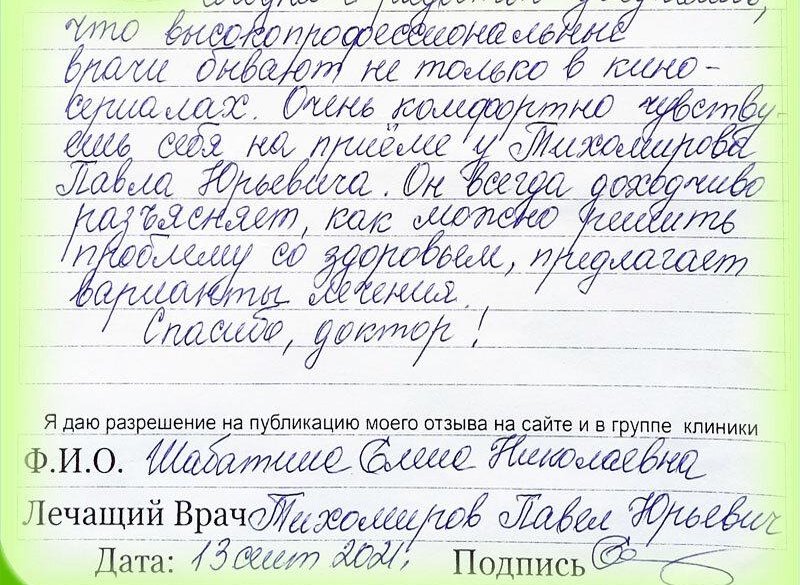 что высокопрофессиональные
врачи бывают не только в кино-
сериалах. Очень комфортно чувству-
ешь себя на приёме у Тихомирова
Павла Юрьевича. Он всегда доходчиво
разъясняет, как можно решить
проблему со здоровьем, предлагает
варианты лечения.
Спасибо, доктор!
Я даю разрешение на публикацию моего отзыва на сайте и в группе клиники
Ф.И.О. Николаевна
Лечащий Врач Тихомиров Павел Юрьевич
Дата: 13 сент 2021. Подпись